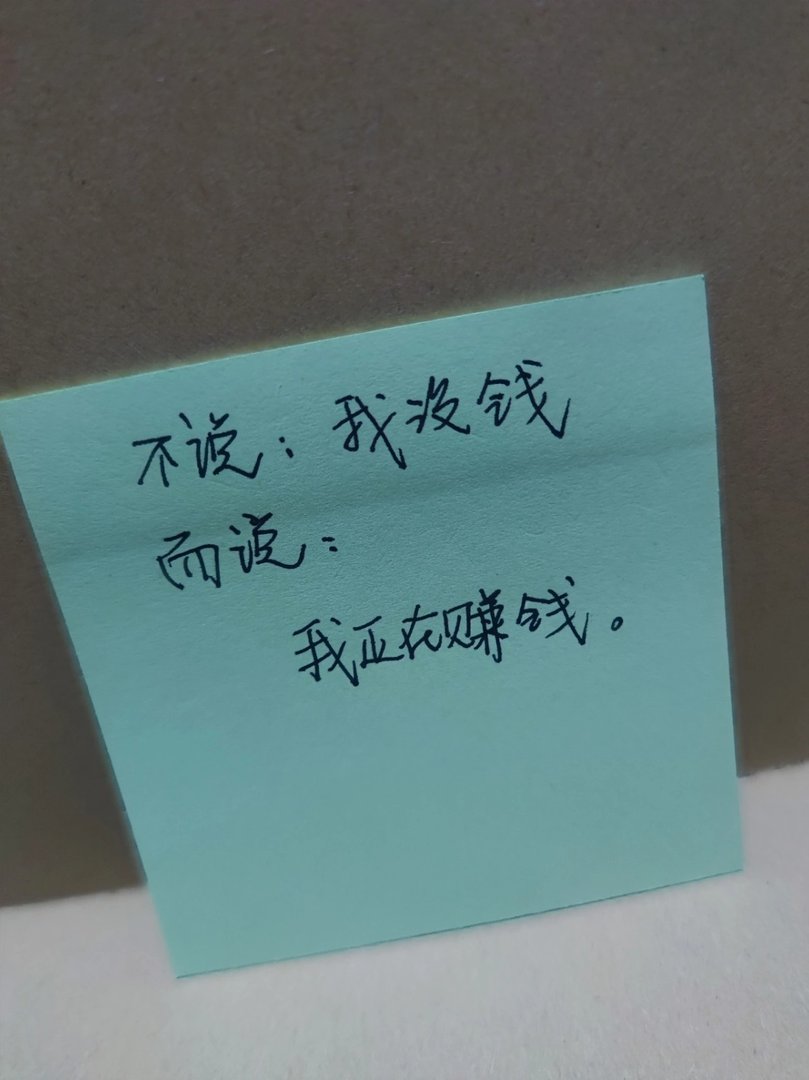 不说：我没钱
而说：
我正在赚钱。